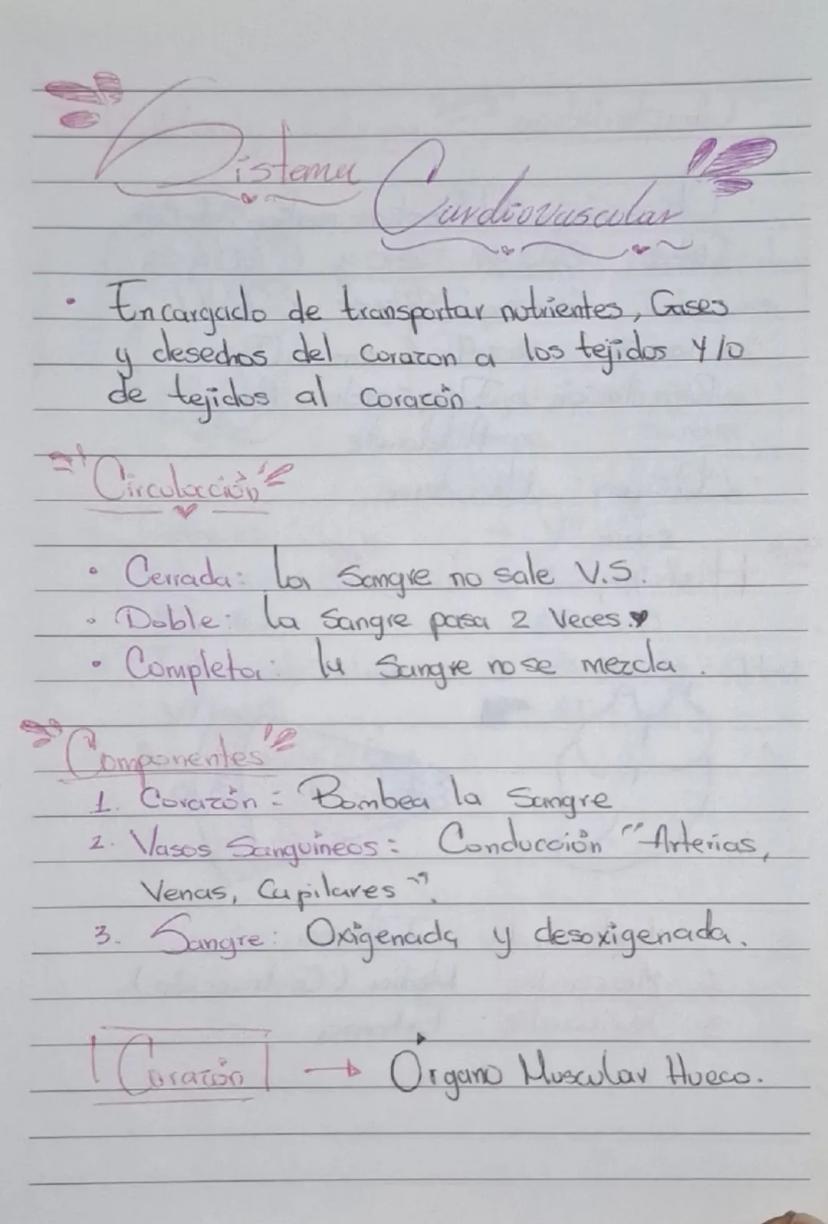 Sistema
Cardiovascular
• Encargado de transportar nutrientes, Gases
y desechos del corazon a los tejidos y/o
de tejidos al corazón.
Circulación
• Cerrada: La Sangre no sale V.S.
• Doble: La Sangre pasa 2 Veces.
• Completa: la Sangre no se mezcla.
Componentes
1. Corazón: Bombea la Sangre
2. Vasos Sanguíneos: Conducción "Arterias,
Venas, Capilares".
3. Sangre: Oxigenada y desoxigenada.
Corazón → Órgano Muscular Hueco.